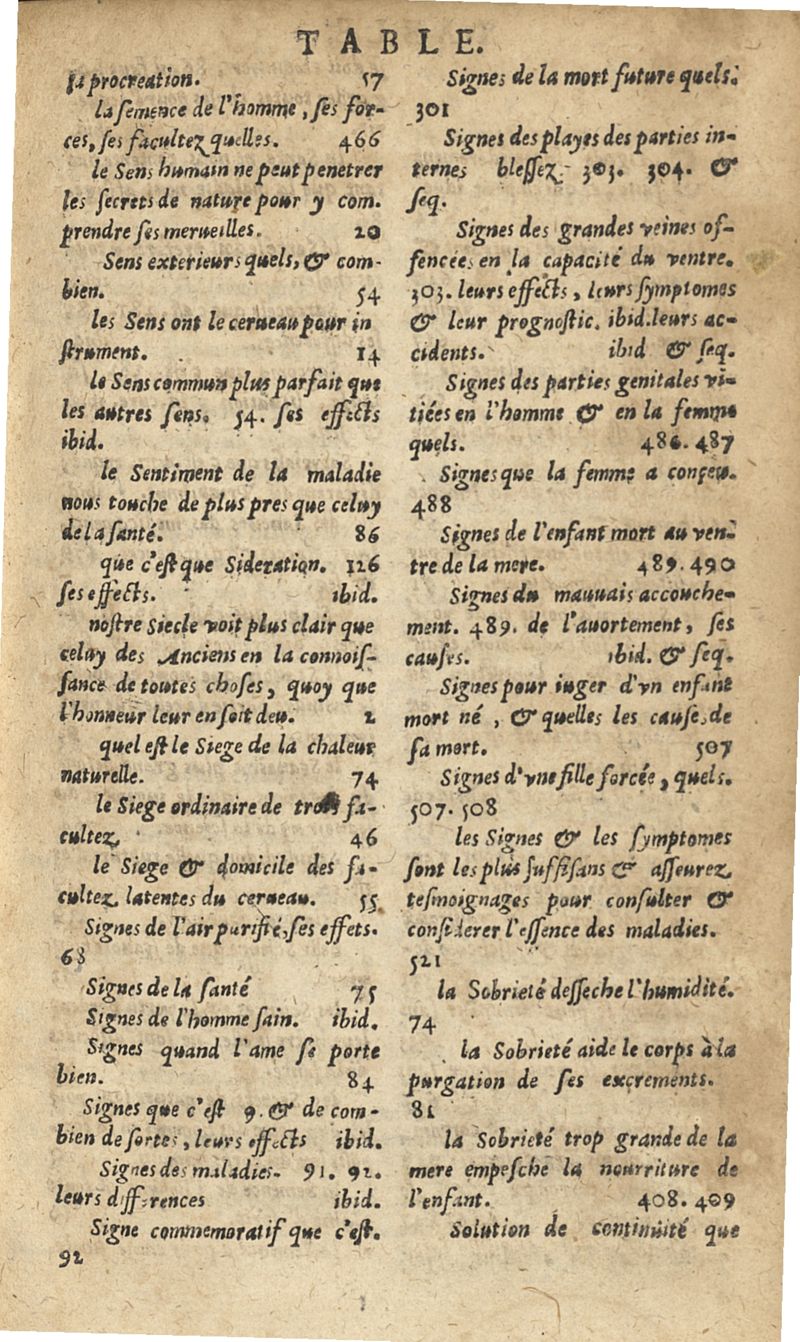 TABLE.
sa procreation. 57
la semence de l'homme, ses for-
ces, ses facultez quelles. 466
le Sens humain ne peut penetrer
les secrets de nature pour y com.
prendre ses merueilles. 20
Sens exterieurs quels, & com-
bien. 54
les Sens ont le cerneau pour in
strument. 14
le Sens commun plus parfait que
les autres sens. 54. ses effects
ibid.
le Sentiment de la maladie
nous touche de plus pres que celuy
de la santé. 86
que c'est que Sideration. 126
ses effects. ibid.
nostre Siecle voit plus clair que
celuy des Anciens en la connois-
sance de toutes choses, quoy que
l'honneur leur en soit deu. 2
quel est le Siege de la chaleur
naturelle. 74
le Siege ordinaire de trois fa-
cultez, 46
le Siege & domicile des fa-
cultez latentes du cerneau. 55
Signes de l'air purifié, ses effets.
68
Signes de la santé 75
Signes de l'homme sain. ibid.
Signes quand l'ame se porte
bien. 84
Signes que c'est 9. & de com-
bien de sortes, leurs effects ibid.
Signes des maladies. 91. 92.
leurs differences ibid.
Signe commemoratif que c'est.
92
Signes de la mort future quels.
301
Signes des playes des parties in-
ternes blessez 303. 304. &
seq.
Signes des grandes veines of-
fencées en la capacité du ventre.
303. leurs effects, leurs symptomes
& leur prognostic. ibid. leurs ac-
cidents. ibid & seq.
Signes des parties genitales vi-
tiées en l'homme & en la femme
quels. 486. 487
Signes que la femme a conçeu.
488
Signes de l'enfant mort au ven-
tre de la mere. 489. 490
Signes du mauuais accouche-
ment. 489. de l'auortement, ses
causes. ibid. & seq.
Signes pour iuger d'vn enfant
mort né, & quelles les cause de
sa mort. 507
Signes d'vne fille forcée, quels.
507. 508
les Signes & les symptomes
sont les plus suffisans & asseurez
tesmoignages pour consulter &
considerer l'essence des maladies.
521
la Sobrieté desseche l'humidité.
74
la Sobrieté aide le corps à la
purgation de ses exçrements.
81
la Sobrieté trop grande de la
mere empesche la nourriture de
l'enfant. 408. 409
Solution de continuité que